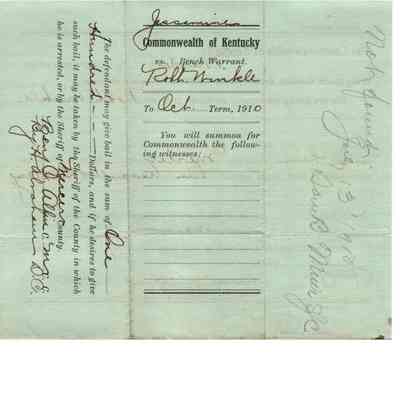 The defendant may give bail in the sum of One
Hundred — — — Dollars, and if he desires to give
such bail, it may be taken by the Sheriff of the County in which
he is arrested, or by the Sheriff of Mercer County.
Ben C. Allin C. M. C. C.
By D.C.
Jessamine
Commonwealth of Kentucky
vs. Bench Warrant.
Robt. Winkle
To Oct. Term, 1910
You will summon for
Commonwealth the follow-
ing witnesses:
Not found
July 13 1910